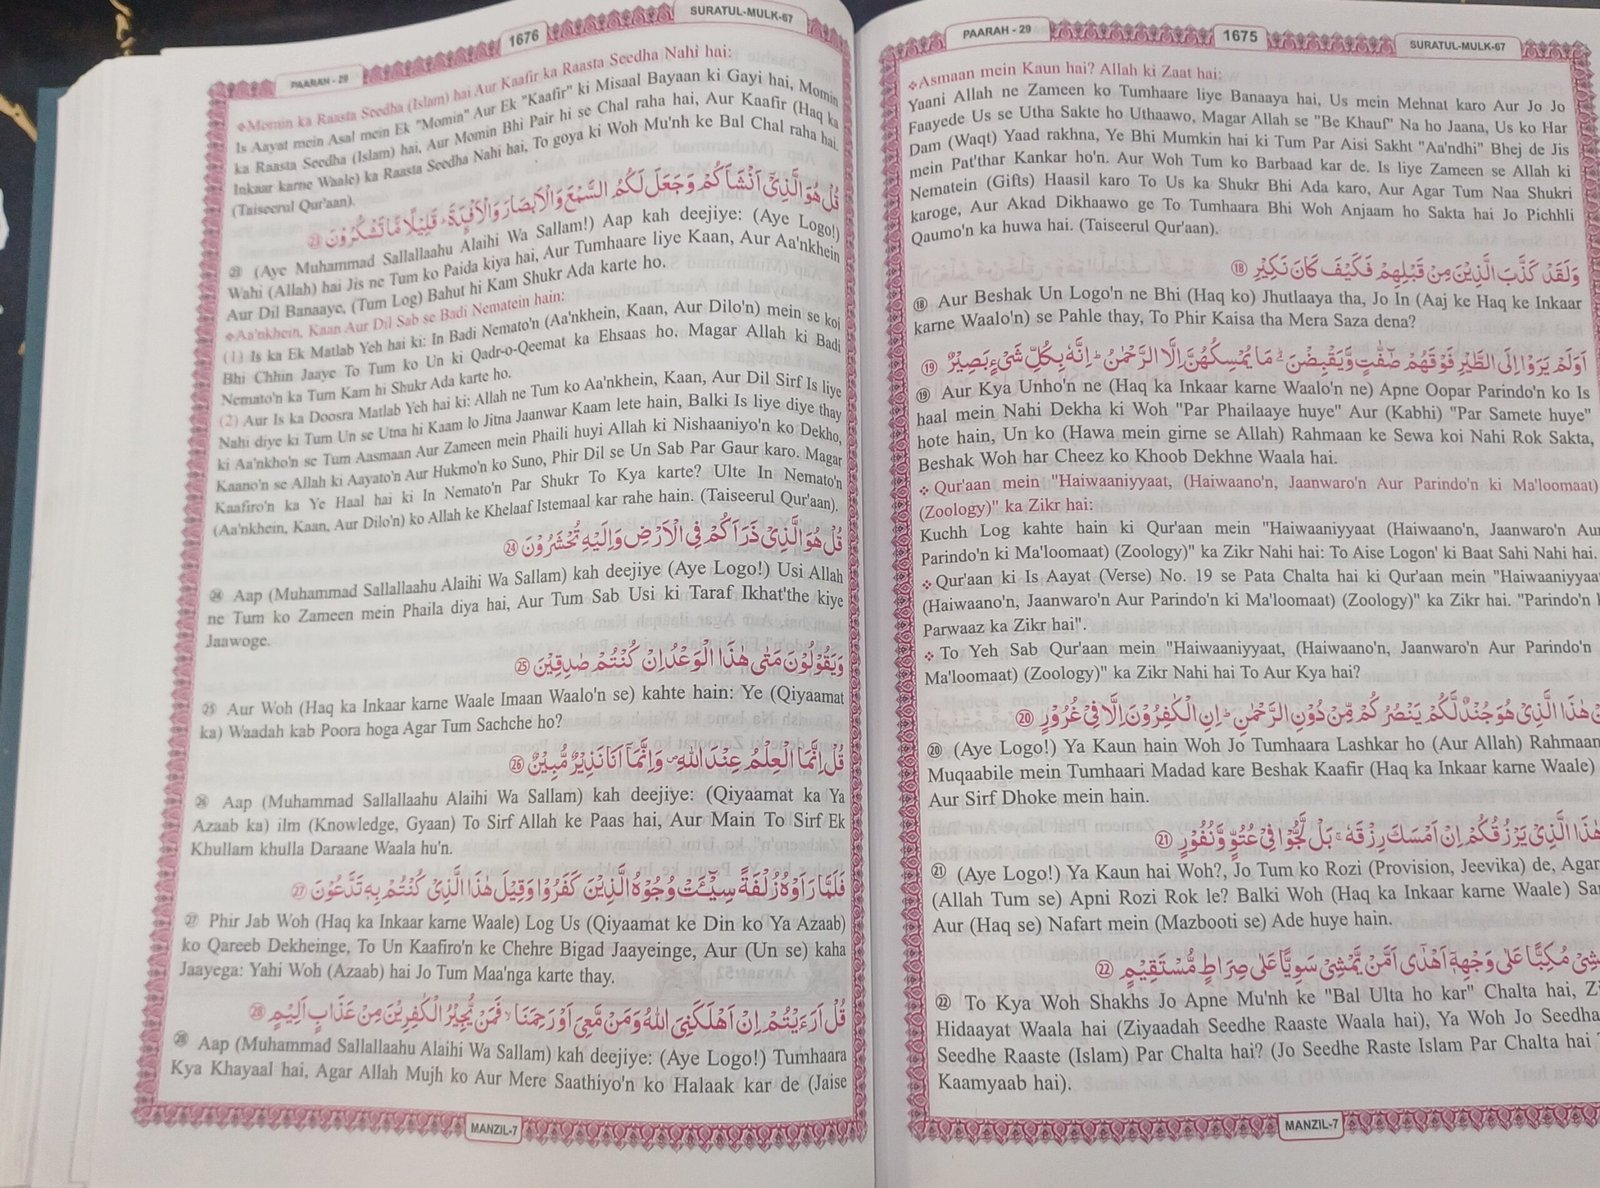 PAARAH - 29
1675
SURATUL-MULK-67
❖Asmaan mein Kaun hai? Allah ki Zaat hai:
Yaani Allah ne Zameen ko Tumhaare liye Banaaya hai, Us mein Mehnat karo Aur Jo Jo
Faayede Us se Utha Sakte ho Uthaawo, Magar Allah se "Be Khauf" Na ho Jaana, Us ko Har
Dam (Waqt) Yaad rakhna, Ye Bhi Mumkin hai ki Tum Par Aisi Sakht "Aa'ndhi" Bhej de Jis
mein Pat'thar Kankar ho'n. Aur Woh Tum ko Barbaad kar de. Is liye Zameen se Allah ki
Nematein (Gifts) Haasil karo To Us ka Shukr Bhi Ada karo, Aur Agar Tum Naa Shukri
karoge, Aur Akad Dikhaawo ge To Tumhaara Bhi Woh Anjaam ho Sakta hai Jo Pichhli
Qaumo'n ka huwa hai. (Taiseerul Qur'aan).
وَلَقَدْ كَذَّبَ الَّذِيْنَ مِنْ قَبْلِهِمْ فَكَيْفَ كَانَ نَكِيْرِ ⑱
⑱ Aur Beshak Un Logo'n ne Bhi (Haq ko) Jhutlaaya tha, Jo In (Aaj ke Haq ke Inkaar
karne Waalo'n) se Pahle thay, To Phir Kaisa tha Mera Saza dena?
اَوَلَمْ يَرَوْا اِلَى الطَّيْرِ فَوْقَهُمْ صٰٓفّٰتٍ وَّيَقْبِضْنَ ؔ مَا يُمْسِكُهُنَّ اِلَّا الرَّحْمٰنُ ؕ اِنَّهٗ بِكُلِّ شَيْءٍۭ بَصِيْرٌ ⑲
⑲ Aur Kya Unho'n ne (Haq ka Inkaar karne Waalo'n ne) Apne Oopar Parindo'n ko Is
haal mein Nahi Dekha ki Woh "Par Phailaaye huye" Aur (Kabhi) "Par Samete huye"
hote hain, Un ko (Hawa mein girne se Allah) Rahmaan ke Sewa koi Nahi Rok Sakta,
Beshak Woh har Cheez ko Khoob Dekhne Waala hai.
❖ Qur'aan mein "Haiwaaniyyaat, (Haiwaano'n, Jaanwaro'n Aur Parindo'n ki Ma'loomaat)
(Zoology)" ka Zikr hai:
Kuchh Log kahte hain ki Qur'aan mein "Haiwaaniyyaat (Haiwaano'n, Jaanwaro'n Aur
Parindo'n ki Ma'loomaat) (Zoology)" ka Zikr Nahi hai: To Aise Logon' ki Baat Sahi Nahi hai.
❖ Qur'aan ki Is Aayat (Verse) No. 19 se Pata Chalta hai ki Qur'aan mein "Haiwaaniyyaa
(Haiwaano'n, Jaanwaro'n Aur Parindo'n ki Ma'loomaat) (Zoology)" ka Zikr hai. "Parindo'n
Parwaaz ka Zikr hai".
❖ To Yeh Sab Qur'aan mein "Haiwaaniyyaat, (Haiwaano'n, Jaanwaro'n Aur Parindo'n
Ma'loomaat) (Zoology)" ka Zikr Nahi hai To Aur Kya hai?
هٰذَا الَّذِيْ هُوَ جُنْدٌ لَّكُمْ يَنْصُرُكُمْ مِّنْ دُوْنِ الرَّحْمٰنِ ؕ اِنِ الْكٰفِرُوْنَ اِلَّا فِيْ غُرُوْرٍ ⑳
⑳ (Aye Logo!) Ya Kaun hain Woh Jo Tumhaara Lashkar ho (Aur Allah) Rahmaan
Muqaabile mein Tumhaari Madad kare Beshak Kaafir (Haq ka Inkaar karne Waale)
Aur Sirf Dhoke mein hain.
هٰذَا الَّذِيْ يَرْزُقُكُمْ اِنْ اَمْسَكَ رِزْقَهٗ ۚ بَلْ لَّجُّوْا فِيْ عُتُوٍّ وَّنُفُوْرٍ ㉑
㉑ (Aye Logo!) Ya Kaun hai Woh?, Jo Tum ko Rozi (Provision, Jeevika) de, Agar
(Allah Tum se) Apni Rozi Rok le? Balki Woh (Haq ka Inkaar karne Waale)
Aur (Haq se) Nafart mein (Mazbooti se) Ade huye hain.
مُكِبًّا عَلٰى وَجْهِهٖٓ اَهْدٰٓى اَمَّنْ يَّمْشِيْ سَوِيًّا عَلٰى صِرَاطٍ مُّسْتَقِيْمٍ ㉒
㉒ To Kya Woh Shakhs Jo Apne Mu'nh ke "Bal Ulta ho kar" Chalta hai,
Hidaayat Waala hai (Ziyaadah Seedhe Raaste Waala hai), Ya Woh Jo Seedha
Seedhe Raaste (Islam) Par Chalta hai? (Jo Seedhe Raste Islam Par Chalta hai
Kaamyaab hai).
MANZIL-7
PAARAH - 29
1676
SURATUL-MULK-67
❖Momin ka Raasta Seedha (Islam) hai Aur Kaafir ka Raasta Seedha Nahi hai:
Is Aayat mein Asal mein Ek "Momin" Aur Ek "Kaafir" ki Misaal Bayaan ki Gayi hai, Momin
ka Raasta Seedha (Islam) hai, Aur Momin Bhi Pair hi se Chal raha hai, Aur Kaafir (Haq ka
Inkaar karne Waale) ka Raasta Seedha Nahi hai, To goya ki Woh Mu'nh ke Bal Chal raha hai.
(Taiseerul Qur'aan).
قُلْ هُوَ الَّذِيْٓ اَنْشَاَكُمْ وَجَعَلَ لَكُمُ السَّمْعَ وَالْاَبْصَارَ وَالْاَفْـِٕدَةَ ؕ قَلِيْلًا مَّا تَشْكُرُوْنَ ㉓
㉓ (Aye Muhammad Sallallaahu Alaihi Wa Sallam!) Aap kah deejiye: (Aye Logo!)
Wahi (Allah) hai Jis ne Tum ko Paida kiya hai, Aur Tumhaare liye Kaan, Aur Aa'nkhein
Aur Dil Banaaye, (Tum Log) Bahut hi Kam Shukr Ada karte ho.
❖Aa'nkhein, Kaan Aur Dil Sab se Badi Nematein hain:
(1) Is ka Ek Matlab Yeh hai ki: In Badi Nemato'n (Aa'nkhein, Kaan, Aur Dilo'n) mein se koi
Bhi Chhin Jaaye To Tum ko Un ki Qadr-o-Qeemat ka Ehsaas ho. Magar Allah ki Badi
Nemato'n ka Tum Kam hi Shukr Ada karte ho.
(2) Aur Is ka Doosra Matlab Yeh hai ki: Allah ne Tum ko Aa'nkhein, Kaan, Aur Dil Sirf Is liye
Nahi diye ki Tum Un se Utna hi Kaam lo Jitna Jaanwar Kaam lete hain, Balki Is liye diye thay
ki Aa'nkho'n se Tum Aasmaan Aur Zameen mein Phaili huyi Allah ki Nishaaniyo'n ko Dekho,
Kaano'n se Allah ki Aayato'n Aur Hukmo'n ko Suno, Phir Dil se Un Sab Par Gaur karo. Magar
Kaafiro'n ka Ye Haal hai ki In Nemato'n Par Shukr To Kya karte? Ulte In Nemato'n
(Aa'nkhein, Kaan, Aur Dilo'n) ko Allah ke Khelaaf Istemaal kar rahe hain. (Taiseerul Qur'aan).
قُلْ هُوَ الَّذِيْ ذَرَاَكُمْ فِي الْاَرْضِ وَاِلَيْهِ تُحْشَرُوْنَ ㉔
㉔ Aap (Muhammad Sallallaahu Alaihi Wa Sallam) kah deejiye (Aye Logo!) Usi Allah
ne Tum ko Zameen mein Phaila diya hai, Aur Tum Sab Usi ki Taraf Ikhat'the kiye
Jaawoge.
وَيَقُوْلُوْنَ مَتٰى هٰذَا الْوَعْدُ اِنْ كُنْتُمْ صٰدِقِيْنَ ㉕
㉕ Aur Woh (Haq ka Inkaar karne Waale Imaan Waalo'n se) kahte hain: Ye (Qiyaamat
ka) Waadah kab Poora hoga Agar Tum Sachche ho?
قُلْ اِنَّمَا الْعِلْمُ عِنْدَ اللّٰهِ ۪ وَاِنَّمَآ اَنَا نَذِيْرٌ مُّبِيْنٌ ㉖
㉖ Aap (Muhammad Sallallaahu Alaihi Wa Sallam) kah deejiye: (Qiyaamat ka Ya
Azaab ka) ilm (Knowledge, Gyaan) To Sirf Allah ke Paas hai, Aur Main To Sirf Ek
Khullam khulla Daraane Waala hu'n.
فَلَمَّا رَاَوْهُ زُلْفَةً سِيْٓـَٔتْ وُجُوْهُ الَّذِيْنَ كَفَرُوْا وَقِيْلَ هٰذَا الَّذِيْ كُنْتُمْ بِهٖ تَدَّعُوْنَ ㉗
㉗ Phir Jab Woh (Haq ka Inkaar karne Waale) Log Us (Qiyaamat ke Din ko Ya Azaab)
ko Qareeb Dekheinge, To Un Kaafiro'n ke Chehre Bigad Jaayeinge, Aur (Un se) kaha
Jaayega: Yahi Woh (Azaab) hai Jo Tum Maa'nga karte thay.
قُلْ اَرَءَيْتُمْ اِنْ اَهْلَكَنِيَ اللّٰهُ وَمَنْ مَّعِيَ اَوْ رَحِمَنَا ۙ فَمَنْ يُّجِيْرُ الْكٰفِرِيْنَ مِنْ عَذَابٍ اَلِيْمٍ ㉘
㉘ Aap (Muhammad Sallallaahu Alaihi Wa Sallam) kah deejiye: (Aye Logo!) Tumhaara
Kya Khayaal hai, Agar Allah Mujh ko Aur Mere Saathiyo'n ko Halaak kar de (Jaise
MANZIL-7